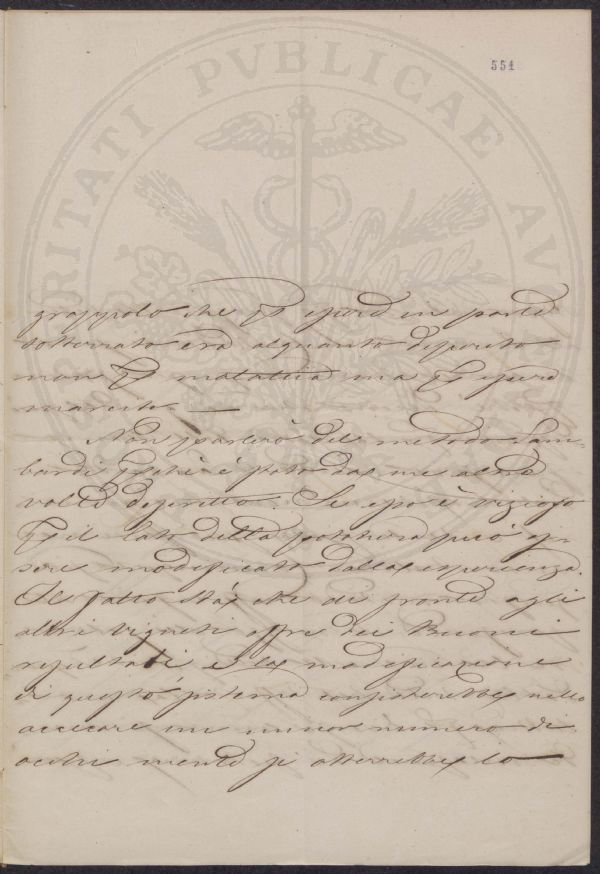 PVBLICAE
554
grappolo che p essere in parte
sotterrato era alquanto deperito
non p malattia ma p essere
marcito. —
Non parlerò del metodo Lom-
bardi è stato da me altre
volte descritto. Se esso è vizioso
p il lato della potatura può es-
sere modificato dalla esperienza.
Il fatto sta che di fronte agli
altri vigneti offre dei Buoni
resultati e la modificazione
di questo sistema consisterebbe nello
accecare un minor numero di
occhi mentre si otterrebbe lo